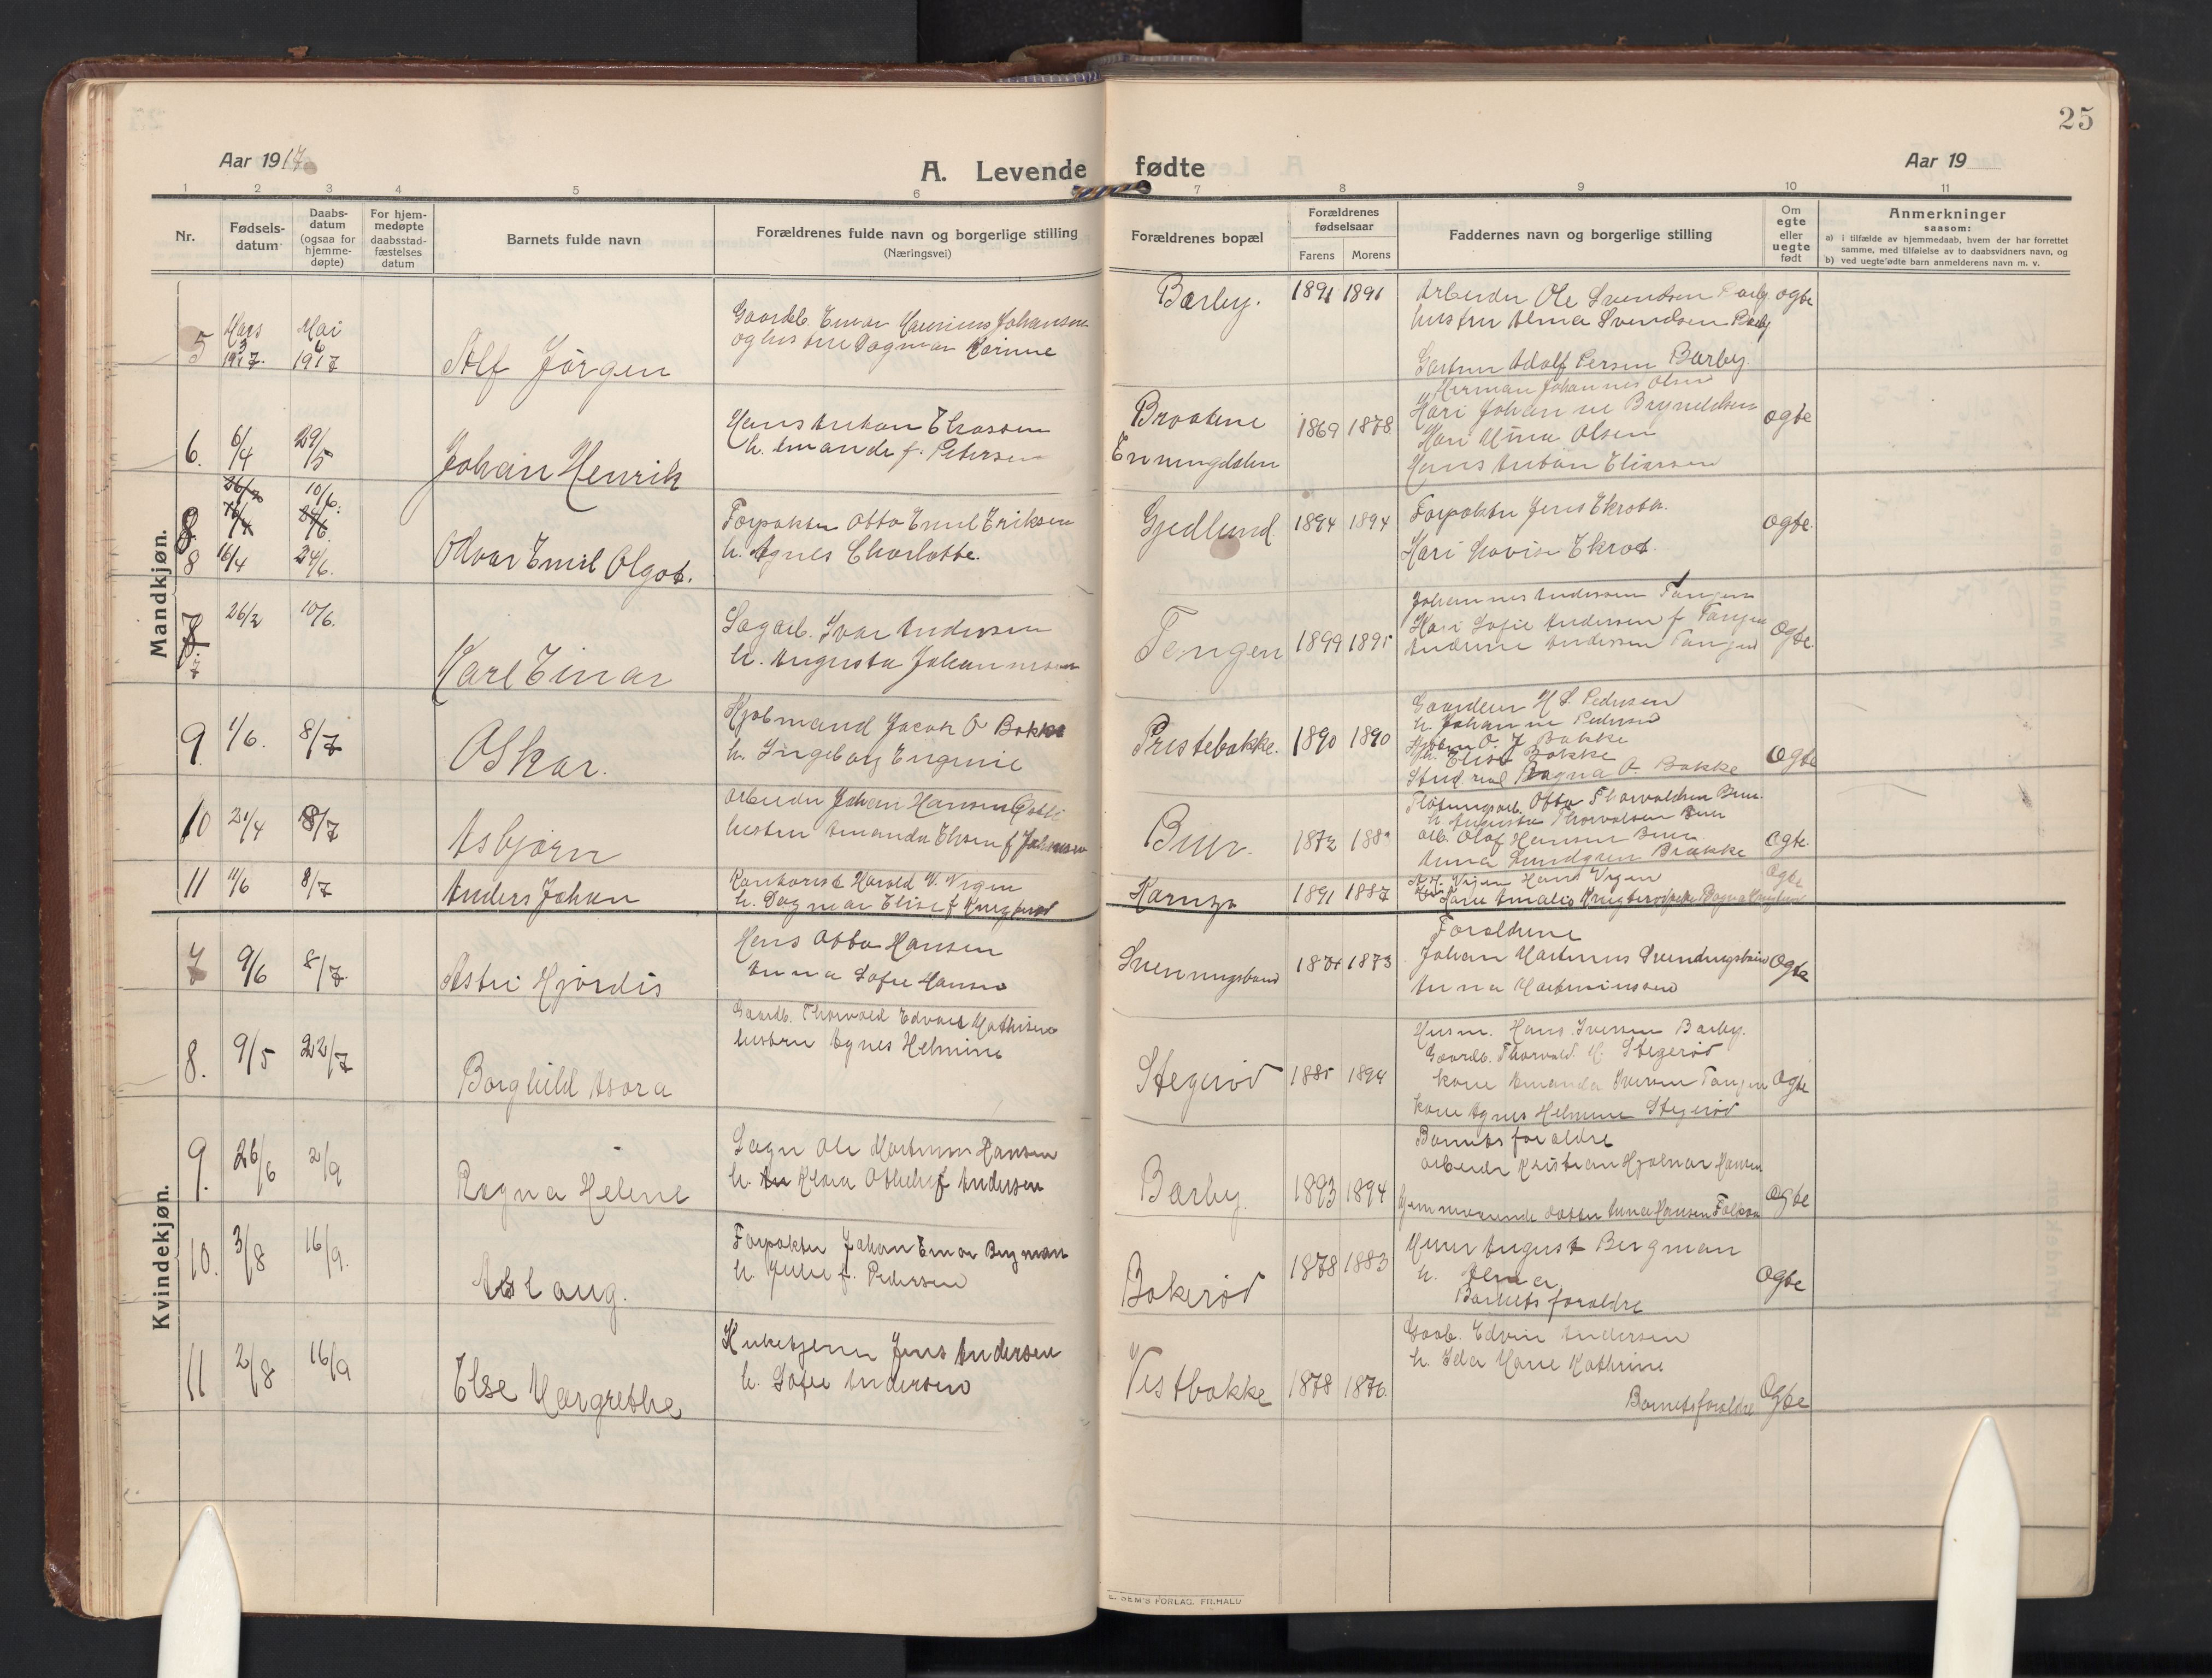 25
Aar 1917
A. Levende fødte
Aar 19
1 2 3 4 5 6 7 8 9 10 11
Nr.
Fødsels-
datum
Daabs-
datum
(ogsaa for
hjemme-
døpte)
For hjem-
medøpte
daabsstad-
fæstelses
datum
Barnets fulde navn
Forældrenes fulde navn og borgerlige stilling
(Næringsvei)
Forældrenes bopæl
Forældrenes
fødselsaar
Farens Morens
Faddernes navn og borgerlige stilling
Om
egte
eller
uegte
født
Anmerkninger
saasom:
a) i tilfælde av hjemmedaab, hvem der har forrettet
samme, med tilføielse av to daabsvidners navn, og
b) ved uegte fødte barn anmelderens navn m. v.
Mandkjøn.
5
Mars
3
1917.
Mai
6
1917
Alf Jørgen
Gaardb. Einar Johansen
og hustru Dagmar Karine
Barby.
1891 1891
Arbeider Ole Svendsen Barby
hustru Alma Svendsen Barby
Adolf Barby.
ogte
6. 6/4 29/5
Johan Henrik
Hans Anton Eliassen
h. Amanda f. Petersen
Braatene
Enningdalen
1869 1878
Herman Johannes Olsen
Kari Johanne Bryneldsen
Kari Mina Olsen
Hans Anton Eliassen
ogte
26/2 10/6.
8 16/4 24/6.
Odvar Emil Olgot.
Forpakter Otto Emil Eriksen
h. Agnes Charlotte.
Gjedlund
1894 1894
Forpakter Jens Ekrot
Kari Lovise Ekrot.
ogte.
7 26/2 10/6.
Karl Einar
Sagarb. Ivar Andersen
h. Augusta Johannessen
Tengen
1899 1895
Johannes Andersen Tangen
Kari Sofie Andersen f Tangen
Andrine Andersen Tangen
ogte.
9. 1/6. 8/7
Oskar.
Kjøbmand Jacob O Bakke
h. Ingeborg Eugenie
Pristebakke.
1890 1890
Gaardeier H S. Pedersen
h. Johanne Pedersen
O. J Bakke
h. Elise Bakke
Stud. real Ragna O. Bakke
Ogte
10 21/4 8/7
Asbjørn
Arbeider Johan Hansen
hustru Amanda f Johansen
Buer.
1872
Fløtningsarb. Otto Thorvaldsen Buer.
h. Augusta Thorvaldsen Buer
arb. Olaf Hansen Buer
Anna Lundgren Brække
ogte.
11 11/6 8/7
Anders Johan
Kontorist Harald V. Vigen
h. Dagmar Elise f
Kornsjø
1891 1887
Vigen Hans Vigen
Amalie
Ogte
Kvindekjøn.
7 9/6 8/7.
Astri Hjørdis
Hans Otto Hansen
Anna Sofie Hansen
1871 1873
Foraldrene
Johan Martinus
Anna
Ogte
8. 9/5 22/7
Borghild Asora
Gaardb. Thorvald Edvard Mathisen
hustru Agnes Helmine
Stegerød
1885 1894
Husm. Hans Iversen Barby.
Gaardb. Thorvald M. Stegerød
kone Amanda Iversen Tangen
kone Agnes Helmine Stegerød
Ogte
9. 26/6 2/9
Ragna Helene
Ole Martinus Hansen
h. Klara f Andersen
Barby
1893 1894
Barnets foraldre
arbeider Kristian Hjalmar Hansen
hjemmevarende datter Anna Hansen
Ogte
10. 3/8 16/9.
Aslaug.
Forpakter Johan Einar Bergman
h. Julie f. Pedersen
Bakerød
1878 1883
Murer August Bergman
h. Alma
Barnets foraldre
ogte
11 2/8 16/9
Else Margrethe
Jens Andersen
h. Sofie Andersen
Vestbakke
1878 1876.
Gaab. Edvin Andersen
h. Ida Marie Kathrine
Barnets foraldre
Ogte
E. SEM'S FORLAG. FR.HALD